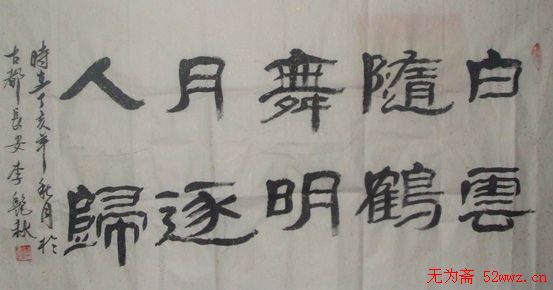 白雲
隨鶴
舞明
月逐
人歸
時在丁亥年秋月於
古都長安李艷秋
无为斋 52wwz.cn